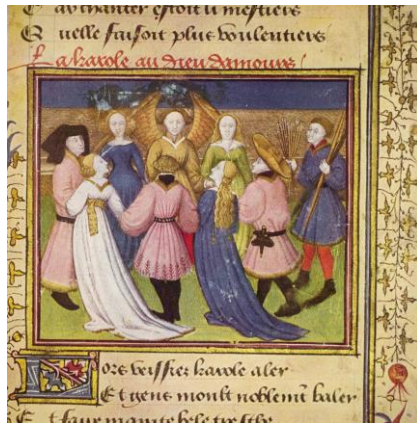 A chanter estoit li mestiers
Q uelle faisoit plus voulentiers
La karole au dieu damours
Lors veissiez karole aler
Et gens moult noblemt baler
E t faire mainte bele tresche